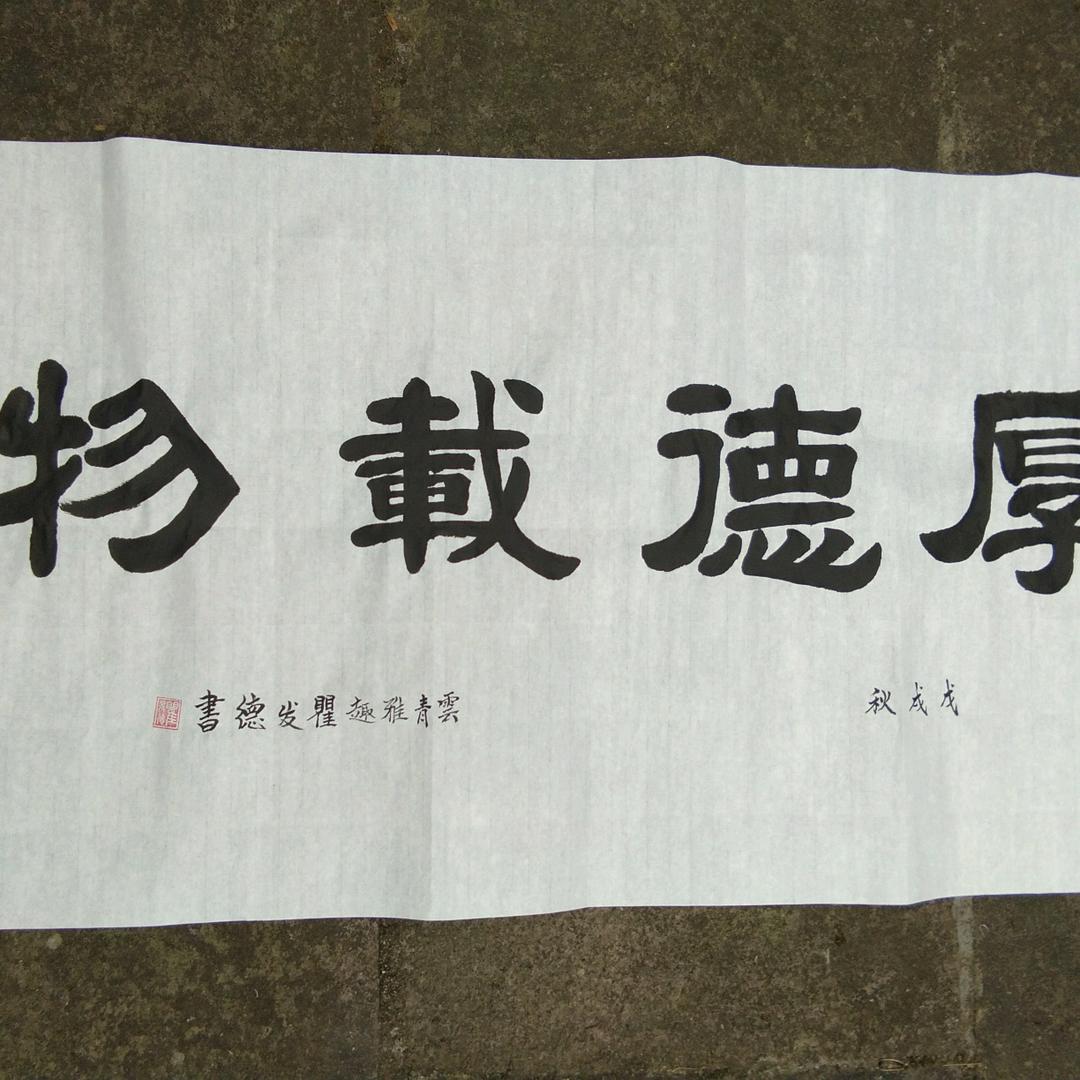 厚德載物
戊戌秋
雲青雅趣瞿发德書